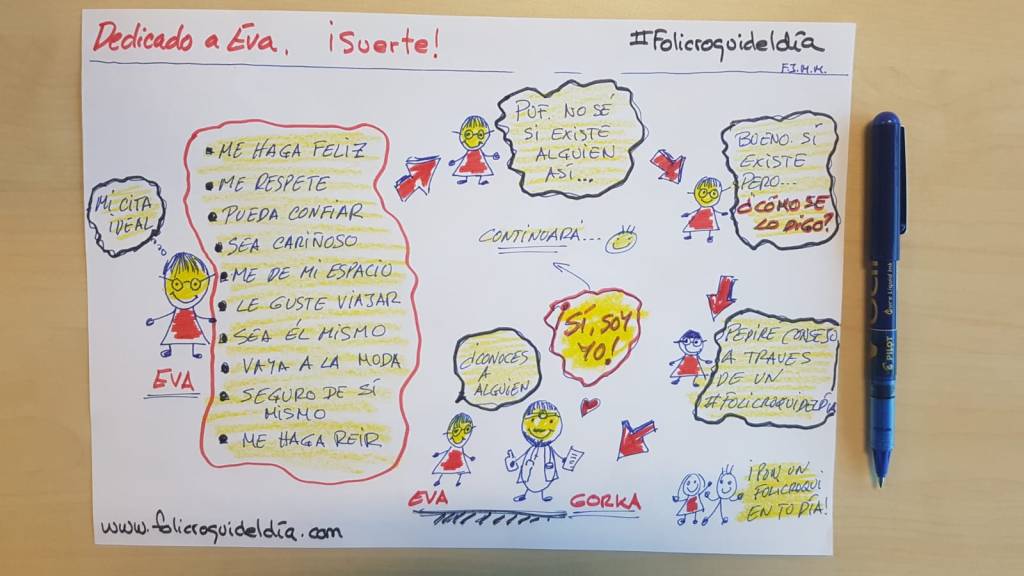 Dedicado a Eva. ¡Suerte!
#Folicroquideldía
F.J.M.M.
MI CITA
IDEAL
EVA
• ME HAGA FELIZ
• ME RESPETE
• PUEDA CONFIAR
• SEA CARIÑOSO
• ME DE MI ESPACIO
• LE GUSTE VIAJAR
• SEA ÉL MISMO
• VAYA A LA MODA
• SEGURO DE SÍ
MISMO
• ME HAGA REIR
PUF. NO SÉ
SI EXISTE
ALGUIEN
ASÍ...
BUENO. SÍ
EXISTE
PERO...
¿CÓMO SE
LO DIGO?
PEDIRE CONSEJO
A TRAVES
DE UN
#FOLICROQUIDELDÍA
¿CONOCES
A
ALGUIEN
SÍ, SOY
YO!
CONTINUARÁ...
EVA
GORKA
¡PON UN
FOLICROQUI
EN TU DÍA!
www.folicroquideldía.com
PILOT